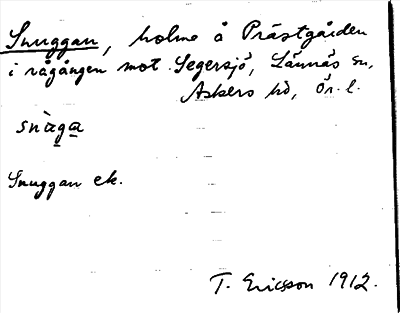 Snuggan, holme å Prästgården
i rågången mot Segersjö, Lännäs sn,
Askers hd, Ör. l.
snàga
Snuggan ek.
T. Ericsson 1912.